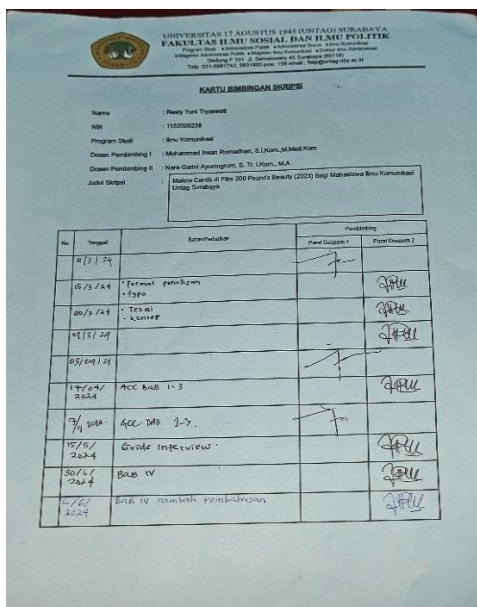 UNIVERSITAS 17 AGUSTUS 1945 (UNTAG) SURABAYA
FAKULTAS ILMU SOSIAL DAN ILMU POLITIK
Program Studi Administrasi Publik Administrasi Bisnis Ilmu Komunikasi
Magister Administrasi Publik Magister Ilmu Komunikasi Doktor Ilmu Administrasi
Gedung F 101 Jl. Semolowaru 45 Surabaya (60118)
KARTU BIMBINGAN SKRIPSI
Nama : Resty Yuni Tryaswati
NBI : 1152000238
Program Studi : Ilmu Komunikasi
Dosen Pembimbing I : Mohammad Insan Romadhan, S.I.Kom.,M.Med.Kom
Dosen Pembimbing II : Nara Garini Ayuningrum, S. Tr. I.Kom., M.A
Judul Skripsi : Makna Cantik di Film 200 Pound's Beauty (2023) Bagi Mahasiswa Ilmu Komunikasi
Untag Surabaya
Pembimbing
No Tanggal Saran/Perbaikan Paraf Dospem 1 Paraf Dospem 2
15/3/24 • Format penulisan
• typo
20/3/24 • Teori
- konsep
17/04/ ACC BAB 1-3
2024
ACC BAB 1-3.
15/5/ Guide Interview.
2024
30/5/ BAB IV
2024
BAB IV nambah pembahasan
2024